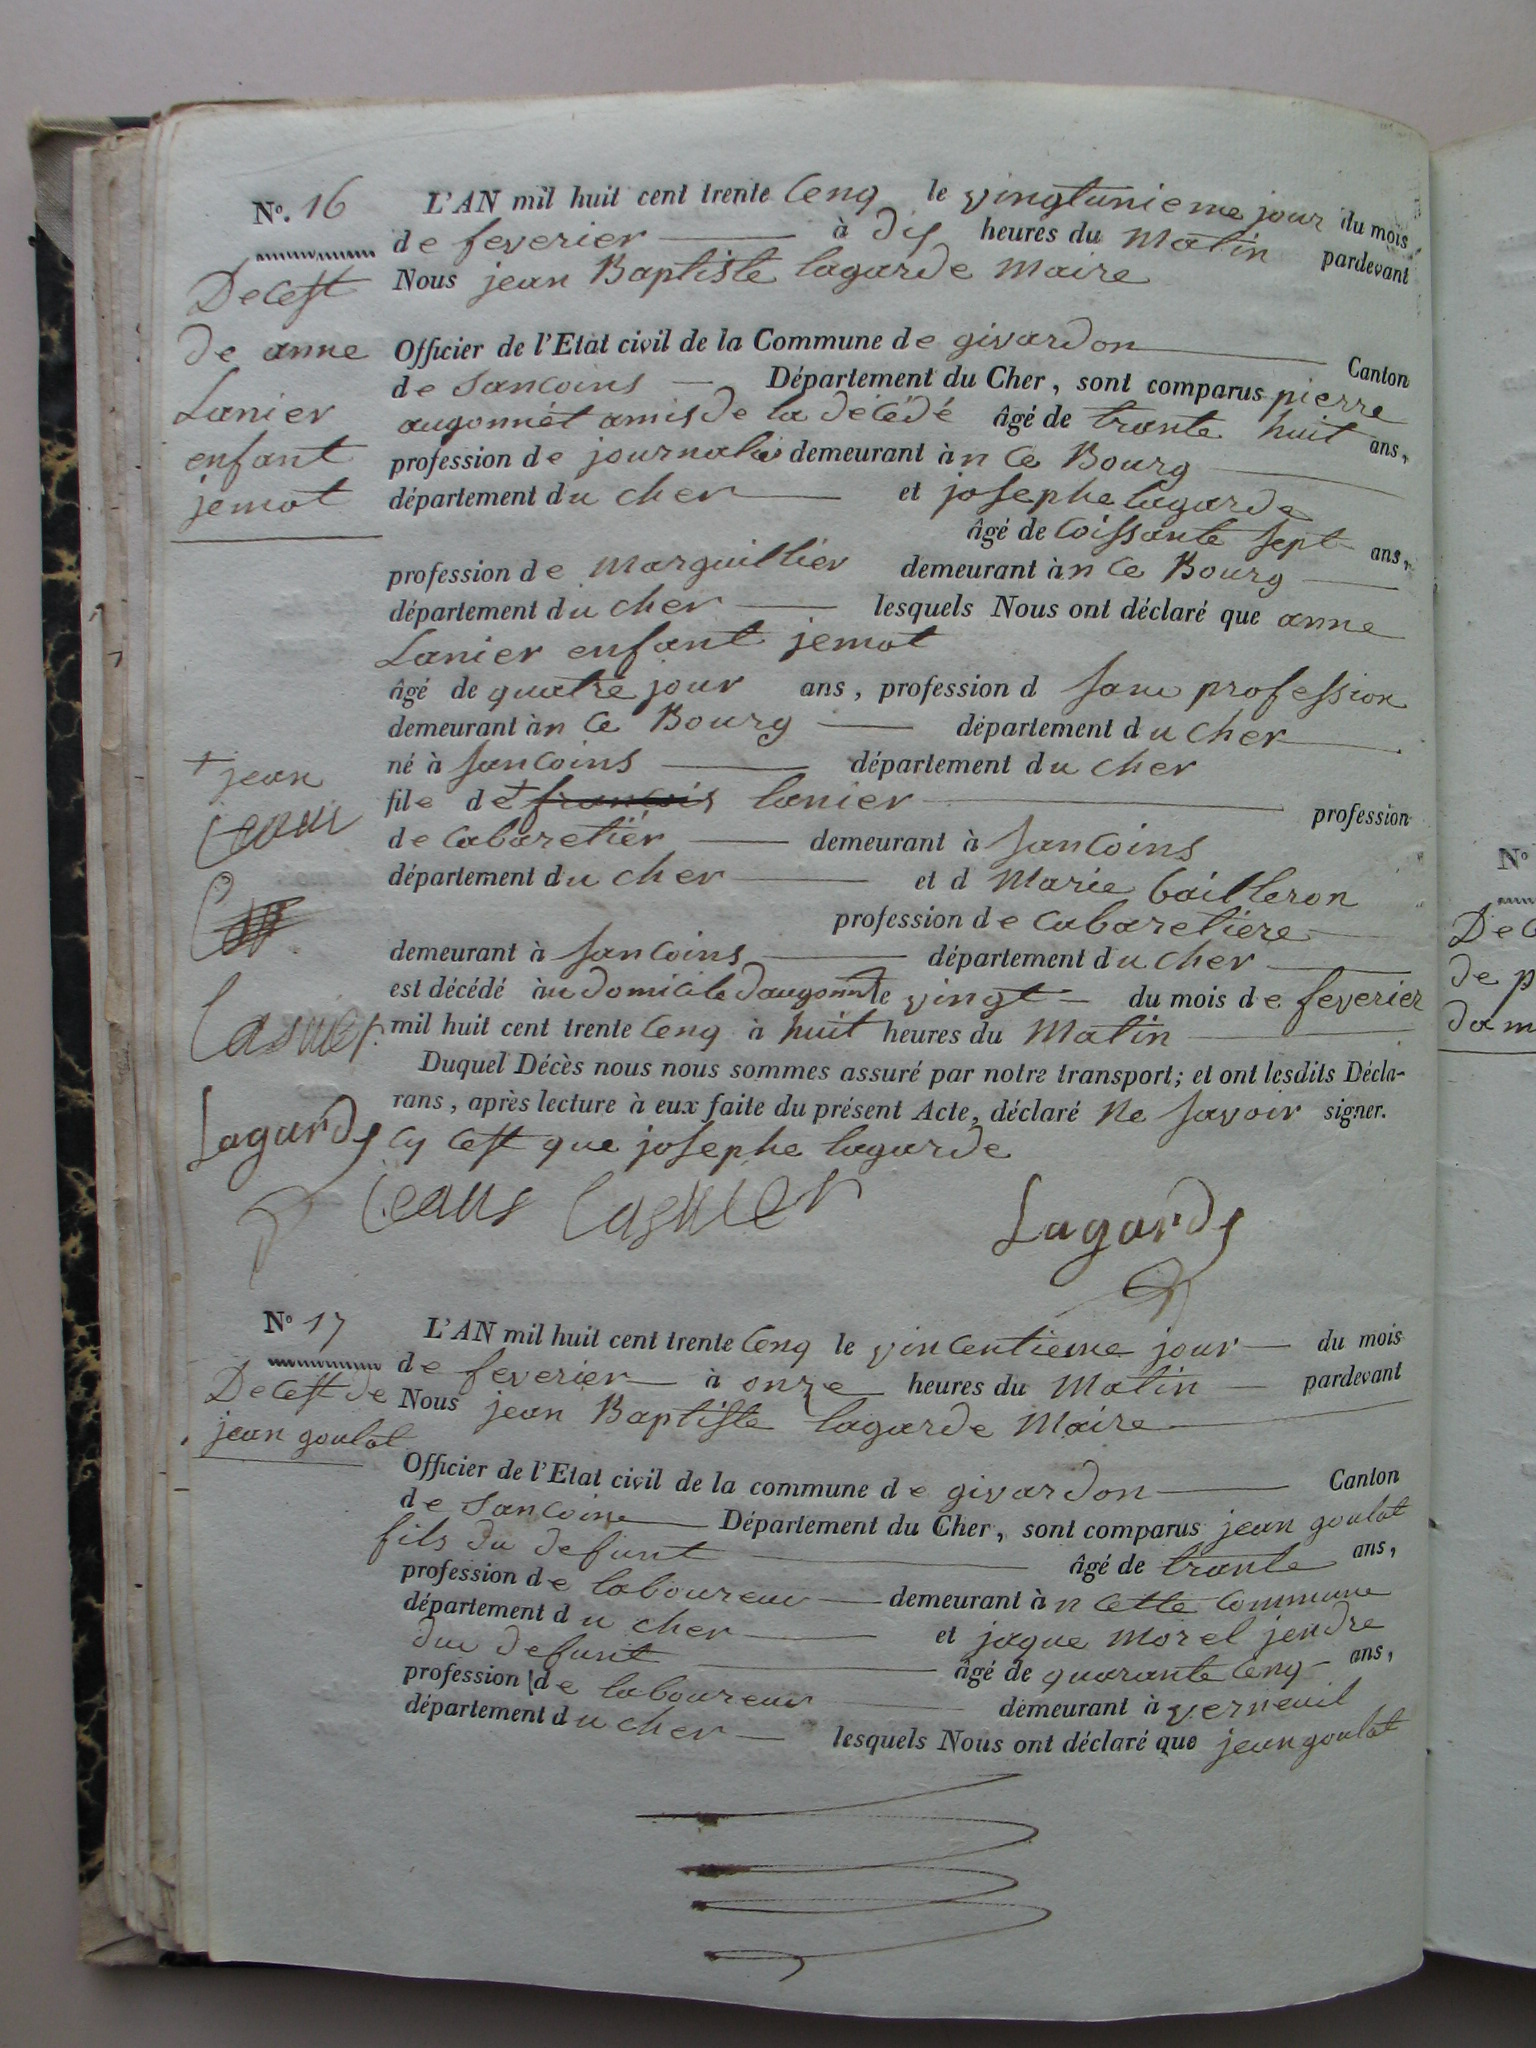 N°. 16
Decest
de anne
Lanier
enfant
jemot
L'AN mil huit cent trente cenq le vingtunieme jour du mois
de feverier à dix heures du matin pardevant
Nous jean Baptiste lagarde maire
Officier de l'Etat civil de la Commune de givardon Canton
de sancoins Département du Cher, sont comparus pierre
augonnét amis de la décédé âgé de trante huit ans,
profession de journalié demeurant àn ce Bourg
département du cher et josephe lagarde
âgé de coissante sept ans,
profession de marguillier demeurant àn ce Bourg
département du cher lesquels Nous ont déclaré que anne
Lanier enfant jemot
âgé de quatre jour ans, profession d sans profession
demeurant àn ce Bourg département du cher
né à sancoins département du cher
file de + francois lanier profession
de cabaretiér demeurant à sancoins
département du cher et d marie bailleron
profession de cabaretiere
demeurant à sancoins département du cher
est décédé àu domicile daugonnet le vingt du mois de feverier
mil huit cent trente cenq à huit heures du matin
Duquel Décès nous nous sommes assuré par notre transport; et ont lesdits Décla-
rans, après lecture à eux faite du présent Acte, déclaré ne savoir signer.
cy cest que josephe lagarde
+ jean
Lagarde
Lagarde
N° 17
Decest de
jean goulat
L'AN mil huit cent trente cenq le vincentieme jour du mois
de feverier à onze heures du matin pardevant
Nous jean Baptiste lagarde maire
Officier de l'Etat civil de la commune de givardon Canton
de sancoins Département du Cher, sont comparus jean goulat
fils du defunt âgé de trante ans,
profession de laboureur demeurant àn cette commune
département du cher et jaque morel jendre
du defunt âgé de quarante cenq ans,
profession de laboureur demeurant à verneuil
département du cher lesquels Nous ont déclaré que jean goulat
N°
Dec
de p
dam